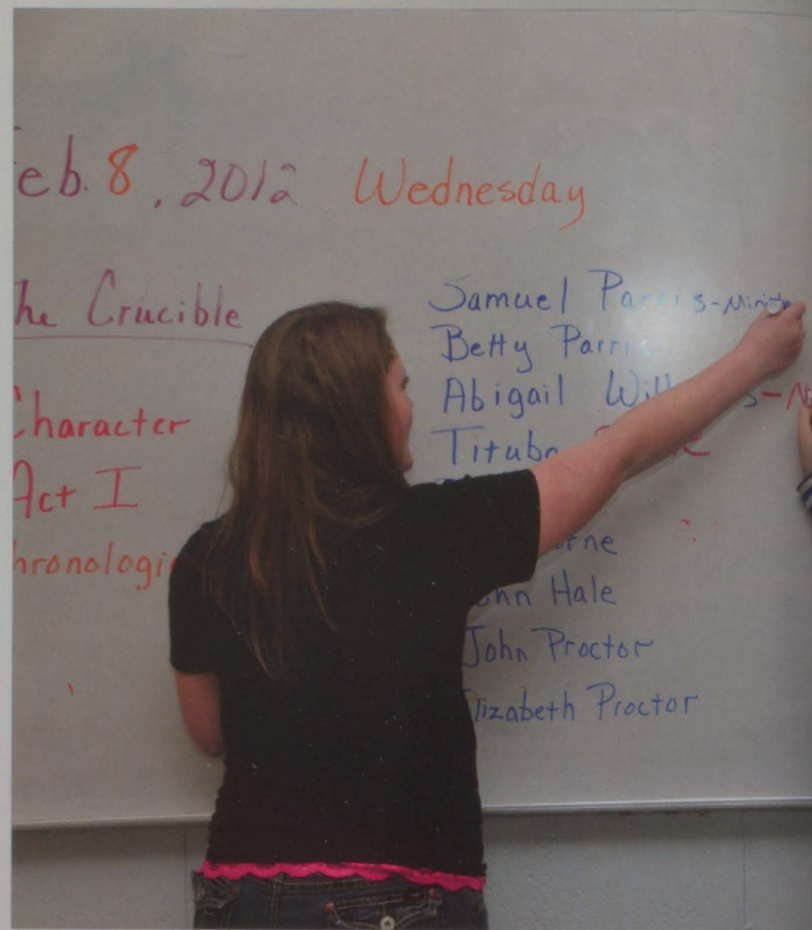 eb. 8, 2012 Wednesday
he Crucible
Character
Act I
hronologi
Samuel Parris-Minist
Betty Parri
Abigail Will s-N
Tituba
rne
ohn Hale
John Proctor
lizabeth Proctor